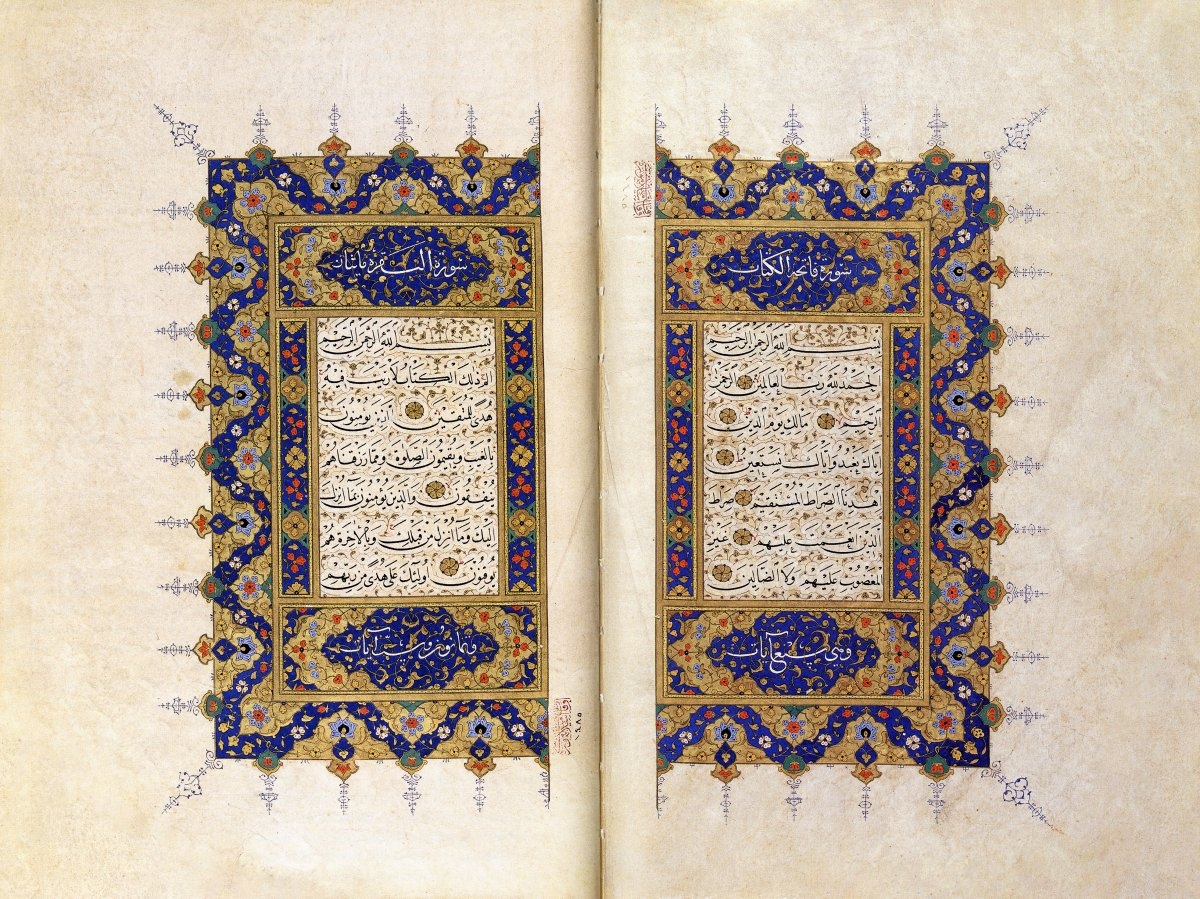 سورة فاتحة الكتاب
بسم الله الرحمن الرحيم
الحمد لله رب العالمين الرحمن
الرحيم مالك يوم الدين
إياك نعبد وإياك نستعين
اهدنا الصراط المستقيم صراط
الذين أنعمت عليهم غير
المغضوب عليهم ولا الضالين
وهي سبع آيات
سورة البقرة مائتان
بسم الله الرحمن الرحيم
الم ذلك الكتاب لا ريب فيه
هدى للمتقين الذين يؤمنون
بالغيب ويقيمون الصلوة ومما رزقناهم
ينفقون والذين يؤمنون بما انزل
اليك وما انزل من قبلك وبالآخرة هم
يوقنون اولئك على هدى من ربهم
وثمانون وست آيات